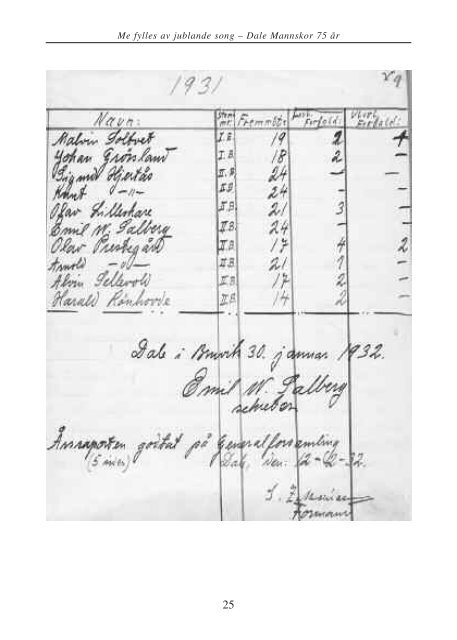 Me fylles av jublande song – Dale Mannskor 75 år
1931
Navn: Stem nr. Fremmøte Lovl. Forfald: Ulovl. Forfald:
Malvin Solbvet I.B. 19 2 4
Johan Grøsland I.B. 18 2 –
Sigmund Hjertås II.B. 24 — –
Knut –"– II.B. 24 – –
Olav Lilleskare II.B. 21 3 –
Emil W. Salberg II.B. 24 – –
Olav Prestegård II.B. 17 4 2
Arnold –"– II.B. 21 1 –
Alvin Sellevold II.B. 17 2 –
Harald Rønhovde II.B. 14 2 –
Dale i Bruvik 30. januar 1932.
Emil W. Salberg
sekretær
Årsraporten godtat på Generalforsamling
Dale, den: 12-2-32.
Formann
25